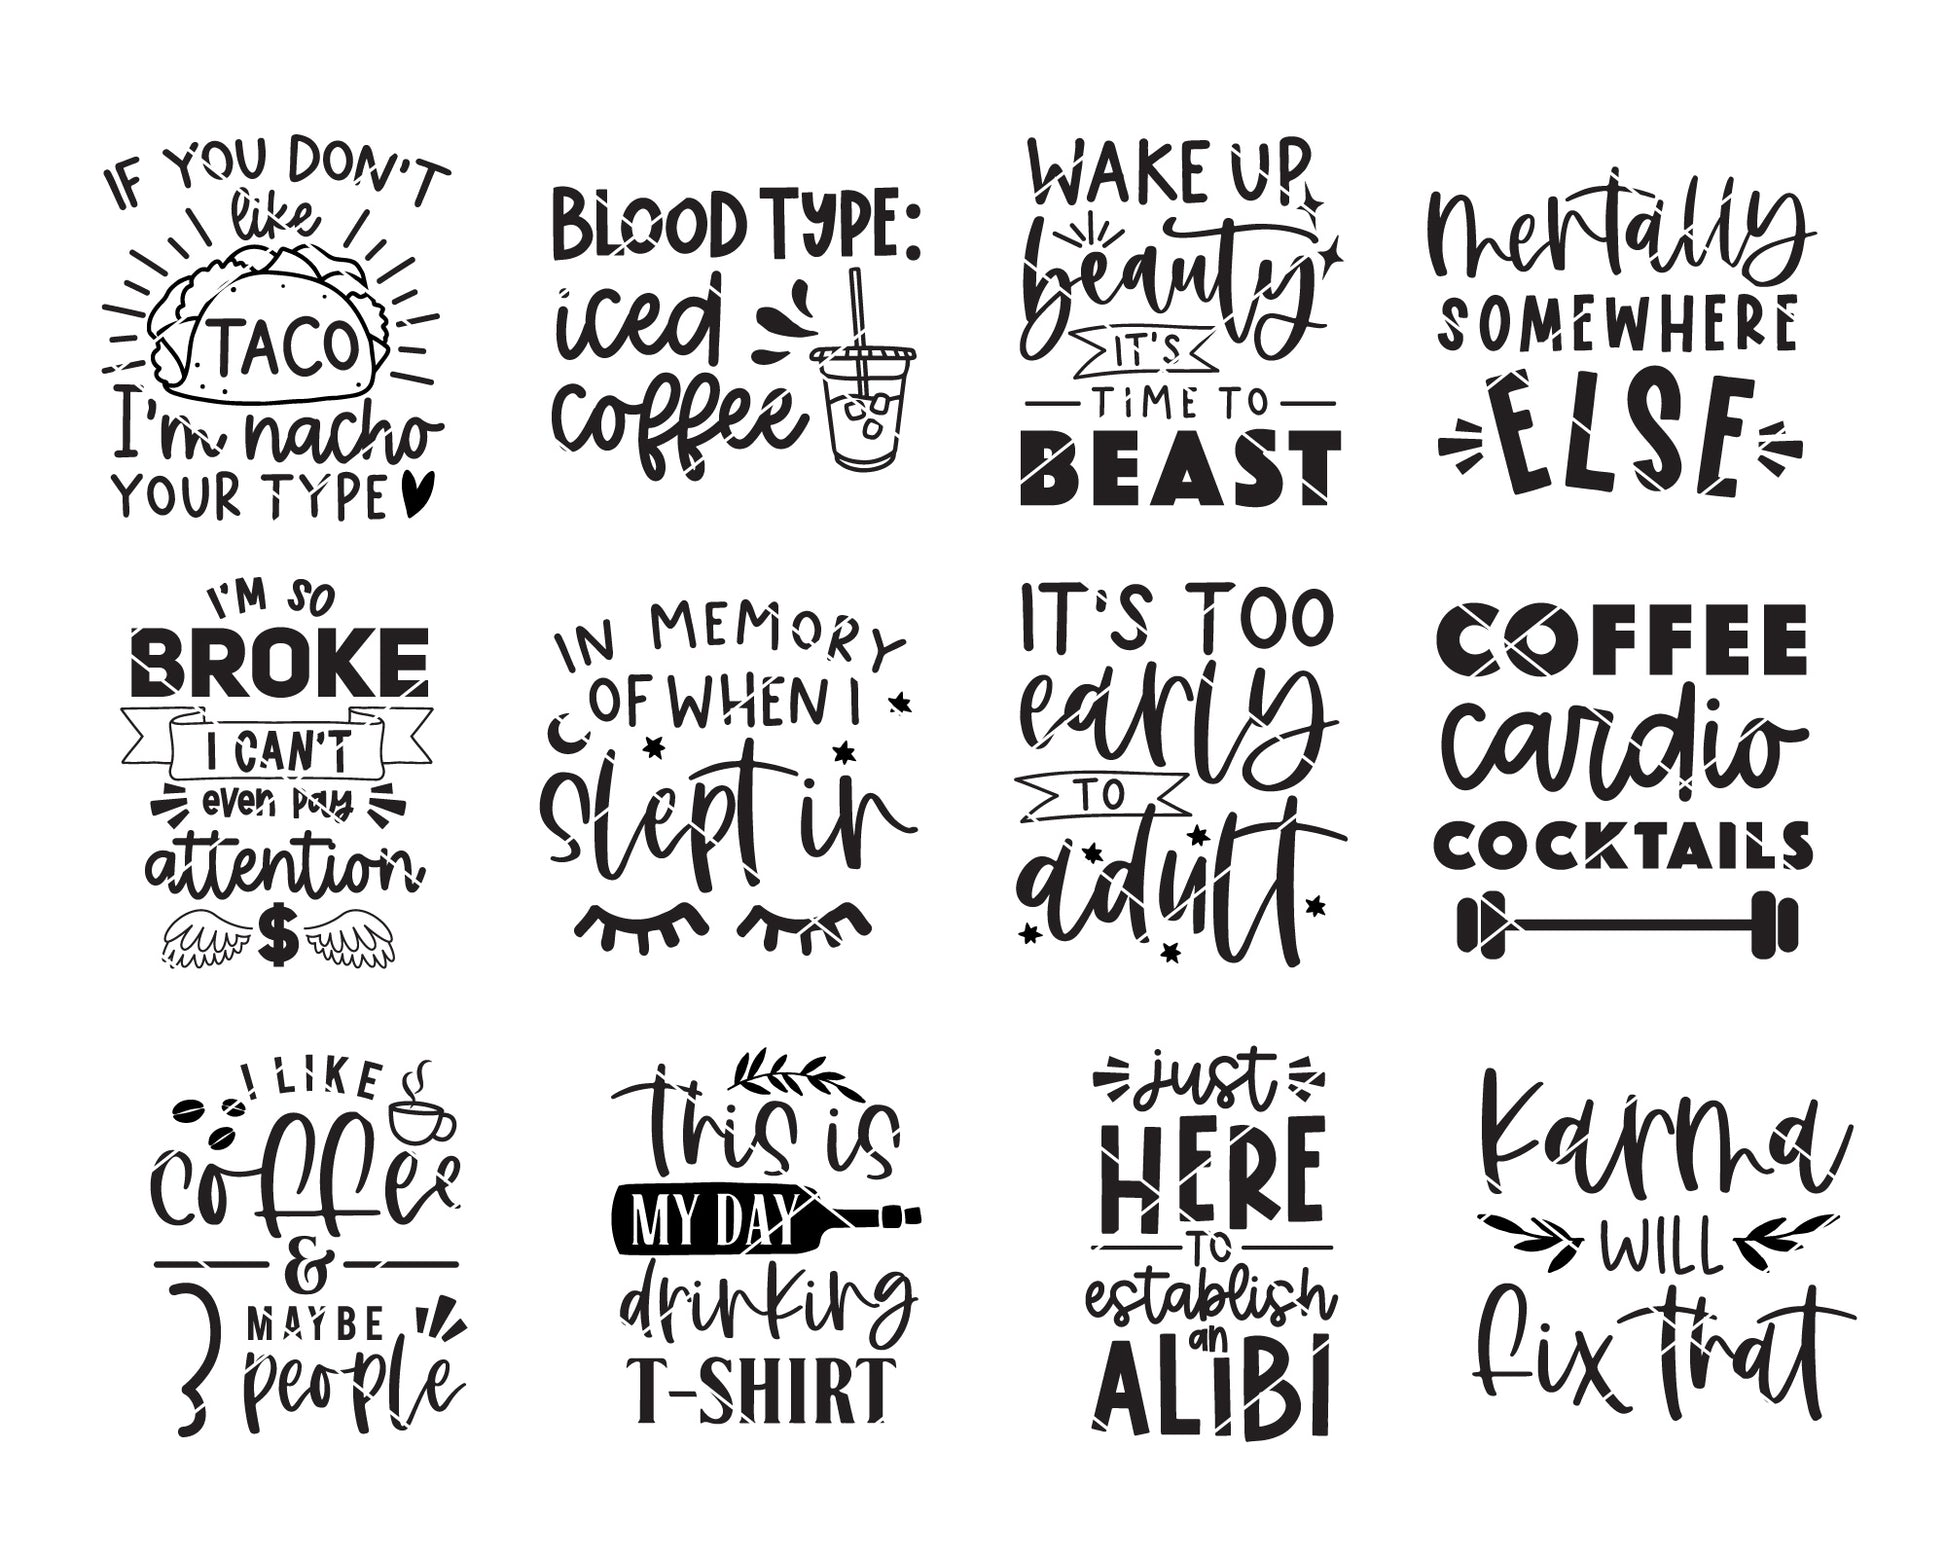 IF YOU DON'T
like
TACO
I'm nacho
YOUR TYPE
BLOOD TYPE:
iced
coffee
WAKE UP
beauty
IT'S
TIME TO
BEAST
mentally
SOMEWHERE
ELSE
I'M SO
BROKE
I CAN'T
even pay
attention
$
IN MEMORY
OF WHEN I
slept in
IT'S TOO
early
TO
adult
COFFEE
cardio
COCKTAILS
I LIKE
coffee
&
MAYBE
3 people
this is
MY DAY
drinking
T-SHIRT
just
HERE
TO
establish
an
ALIBI
Karma
WILL
fix that